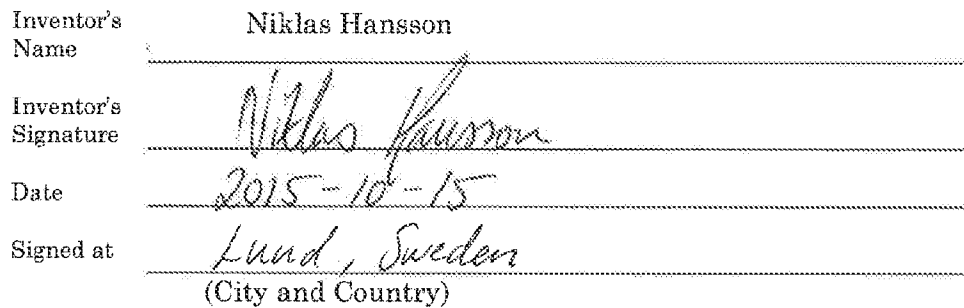 Inventor's Name Niklas Hansson
Inventor's Signature Niklas Hansson
Date 2015-10-15
Signed at Lund, Sweden
(City and Country)